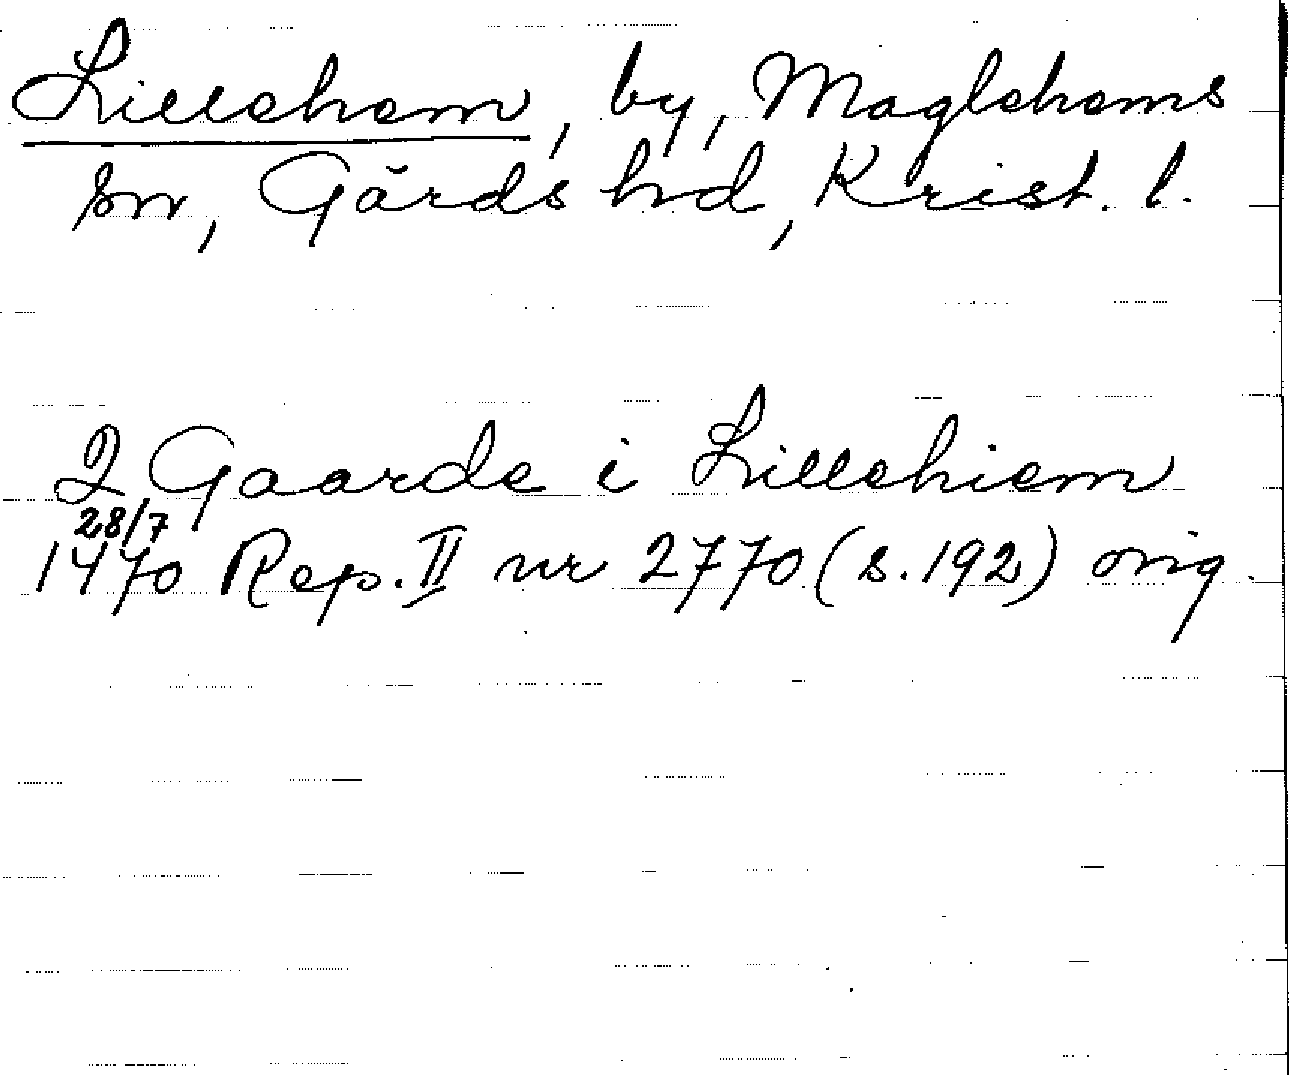 Lillehem, by, Maglehems
sn, Gärds hd, Krist. l.
2 Gaarde i Lillehiem
28/7
1470 Rep. II nr 2770 (s. 192) orig.